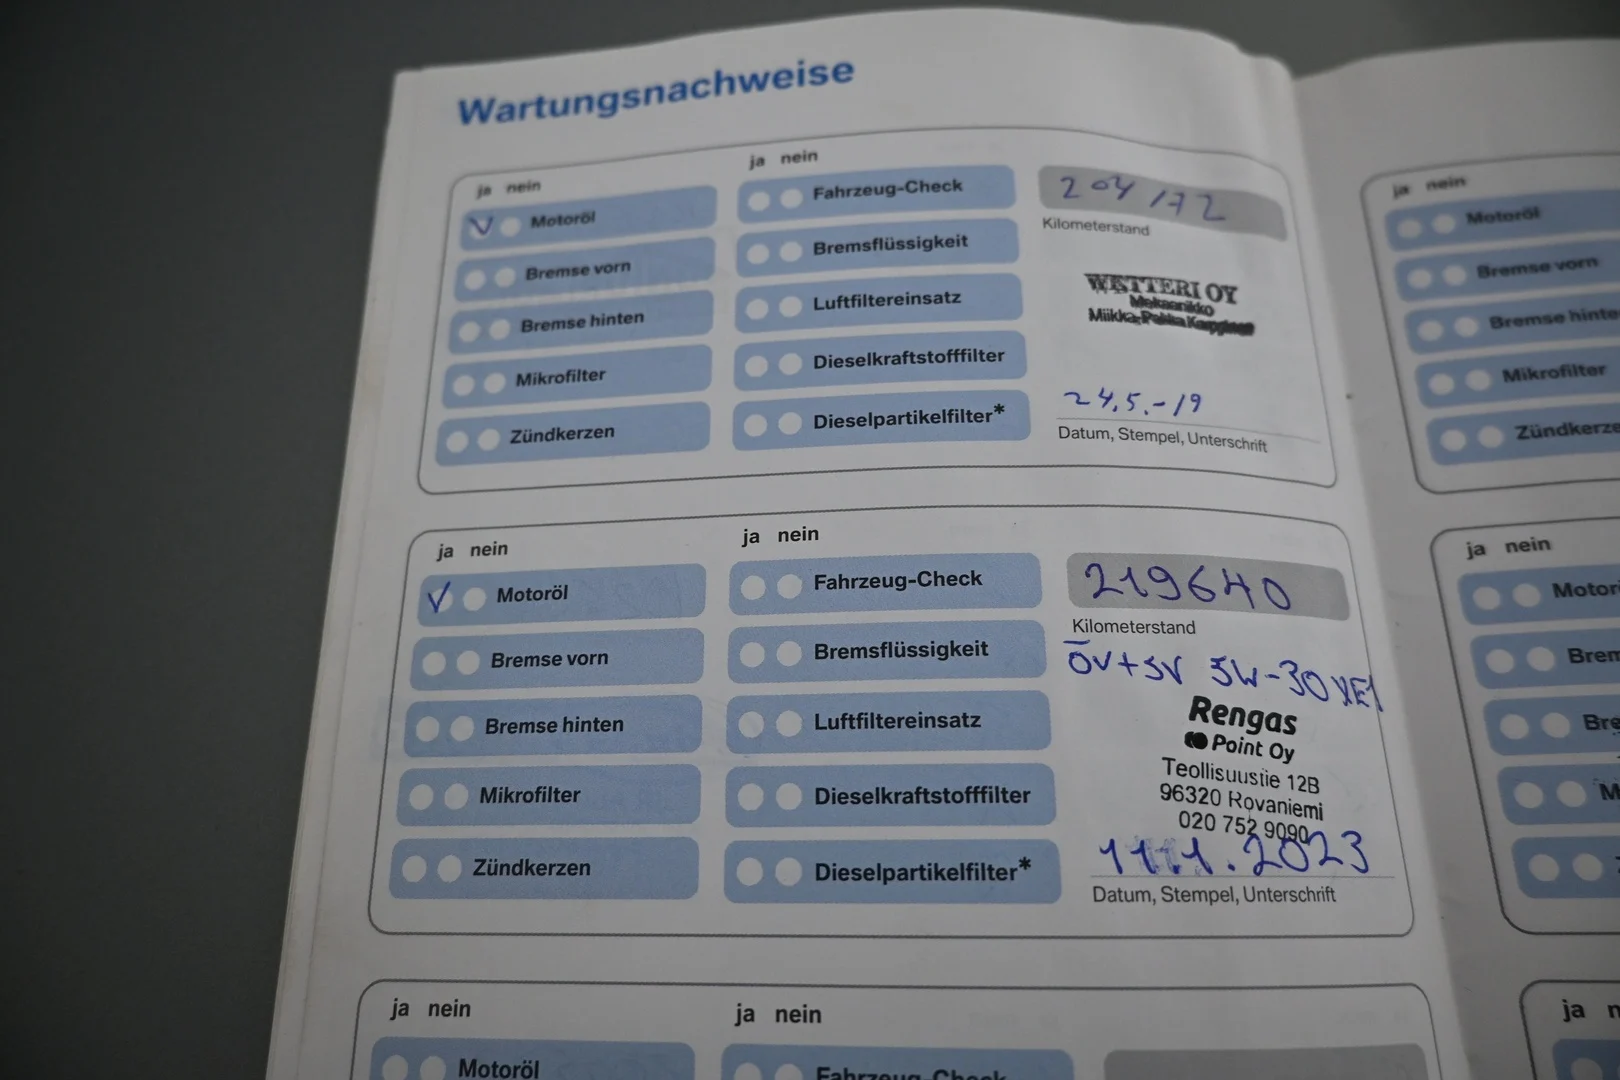 Wartungsnachweise
ja nein
Motoröl
Bremse vorn
Bremse hinten
Mikrofilter
Zündkerzen
ja nein
Fahrzeug-Check
Bremsflüssigkeit
Luftfiltereinsatz
Dieselkraftstofffilter
Dieselpartikelfilter*
204172
Kilometerstand
WETTERI OY
Mekaanikko
Miikka-Pekka
24.5.-19
Datum, Stempel, Unterschrift
ja nein
Motoröl
Bremse vorn
Bremse hinten
Mikrofilter
Zündkerzen
ja nein
Fahrzeug-Check
Bremsflüssigkeit
Luftfiltereinsatz
Dieselkraftstofffilter
Dieselpartikelfilter*
219640
Kilometerstand
ÖV+SV 5W-30
Rengas
Point Oy
Teollisuustie 12B
96320 Rovaniemi
020 752 9090
11.1.2023
Datum, Stempel, Unterschrift
ja nein
Motoröl
ja nein
Fahrzeug-Check
ja nein
Motoröl
Bremse vorn
Bremse hinte
Mikrofilter
Zündkerze
ja nein
Motor
Brem
Bre
M
ja n